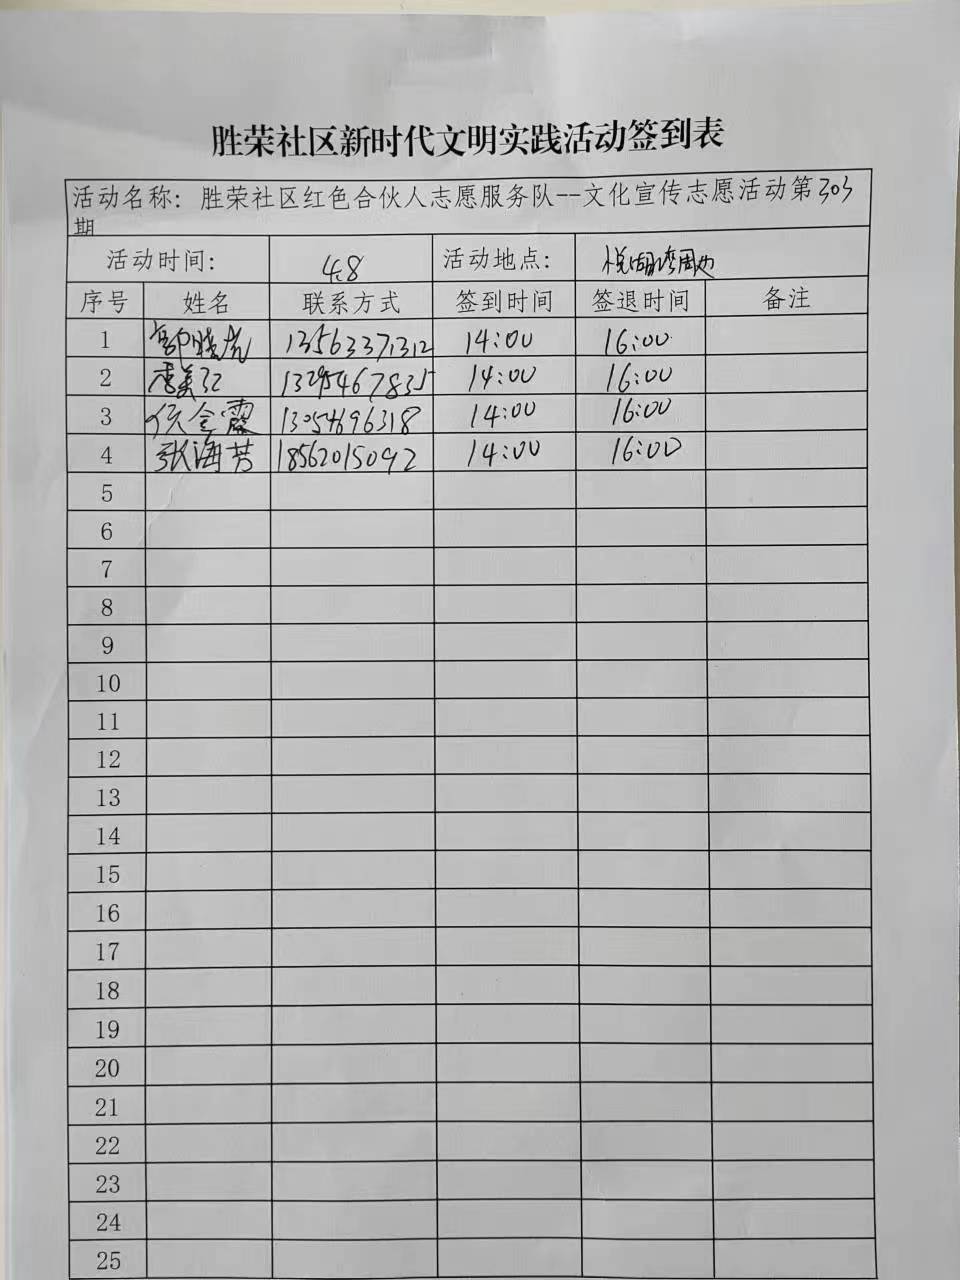 胜荣社区新时代文明实践活动签到表
活动名称：胜荣社区红色合伙人志愿服务队--文化宣传志愿活动第303
期
活动时间： 4.8 活动地点： 悦湖湾周边
序号 姓名 联系方式 签到时间 签退时间 备注
1 郭晓虎 13563371312 14:00 16:00
2 李美江 14:00 16:00
3 13054696318 14:00 16:00
4 张海芳 18562015092 14:00 16:00
5
6
7
8
9
10
11
12
13
14
15
16
17
18
19
20
21
22
23
24
25